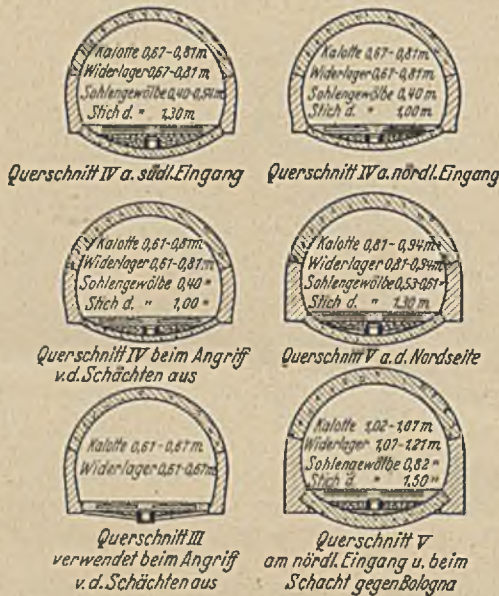 Kalotte 0,67-0,81m
Widerlager 0,67-0,81 m
Sohlengewölbe 0,40-0,54m
Stich d. " 1,30m
Querschnitt IV a. südl. Eingang
Kalotte 0,67-0,81m
Widerlager 0,67-0,81m
Sohlengewölbe 0,40 m
Stich d. " 1,00m
Querschnitt IV a. nördl. Eingang
Kalotte 0,61-0,81m
Widerlager 0,61-0,81m
Sohlengewölbe 0,40 "
Stich d. " 1,00 "
Querschnitt IV beim Angriff
v.d. Schächten aus
Kalotte 0,81-0,94m
Widerlager 0,81-0,94m
Sohlengewölbe 0,53-0,61 "
Stich d. " 1,30 m
Querschnitt V a.d. Nordseite
Kalotte 0,61-0,67m
Widerlager 0,61-0,67m
Querschnitt III
verwendet beim Angriff
v.d. Schächten aus
Kalotte 1,02-1,07m
Widerlager 1,07-1,21m
Sohlengewölbe 0,82 "
Stich d. " 1,50 "
Querschnitt V
am nördl. Eingang u. beim
Schacht gegen Bologna